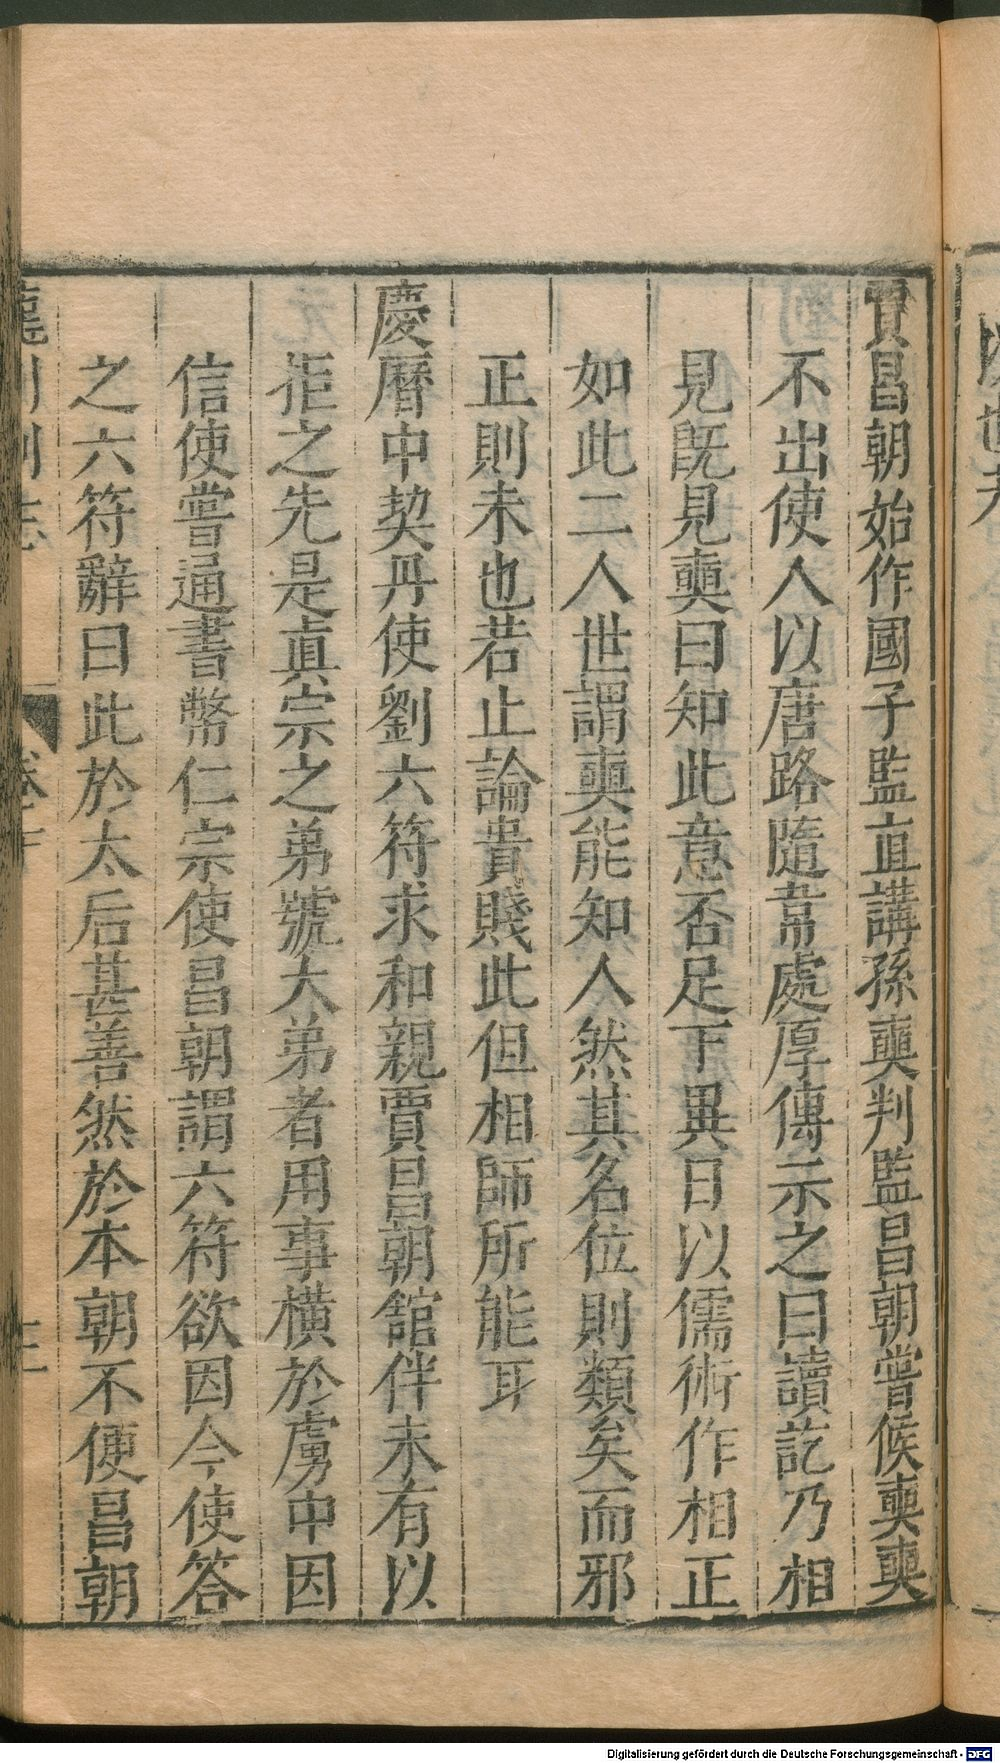 賈昌朝始作國子監直講孫奭判監昌朝嘗候奭奭
不出使人以唐路隨韋處厚傳示之曰讀訖乃相
見既見奭曰知此意否足下異日以儒術作相正
如此二人世謂奭能知人然其名位則類矣而邪
正則未也若止論貴賤此但相師所能耳
慶曆中契丹使劉六符求和親賈昌朝舘伴未有以
拒之先是真宗之弟號大弟者用事橫於虜中因
信使嘗通書幣仁宗使昌朝謂六符欲因今使答
之六符辭曰此於太后甚善然於本朝不便昌朝
Digitalisierung gefördert durch die Deutsche Forschungsgemeinschaft - DFG